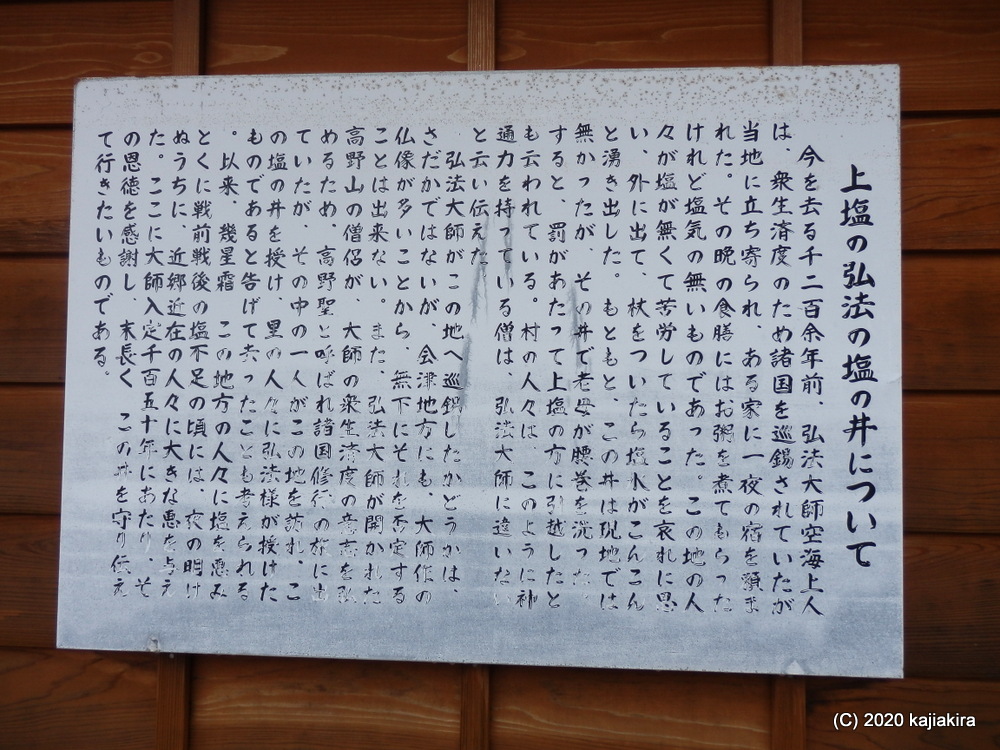 上塩の弘法の塩の井について
今を去る千二百余年前、弘法大師空海上人
は、衆生済度のため諸国を巡錫されていたが
当地に立ち寄られ、ある家に一夜の宿を頼ま
れた。その晩の食膳にはお粥を煮てもらった
けれど塩気の無いものであった。この地の人
々が塩が無くて苦労していることを哀れに思
い、外に出て、杖をついたら塩水がこんこん
と湧き出した。もともと、この井は現地では
無かったが、その井で老母が腰巻を洗った。
すると、罰があたって上塩の方に引越したと
も云われている。村の人々は、このように神
通力を持っている僧は、弘法大師に違いない
と云い伝えた。
弘法大師がこの地へ巡錫したかどうかは、
さだかではないが、会津地方にも、大師作の
仏像が多いことから、無下にそれを否定する
ことは出来ない。また、弘法大師が開かれた
高野山の僧侶が、大師の衆生済度の意志を弘
めるため、高野聖と呼ばれ諸国修行の旅に出
ていたが、その中の一人がこの地を訪れ、こ
の塩の井を授け、里の人々に弘法様が授けた
ものであると告げて去ったことも考えられる
。以来、幾星霜 この地方の人々に塩を恵み
とくに戦前戦後の塩不足の頃には、夜の明け
ぬうちに、近郷近在の人々に大きな恵を与え
た。ここに大師入定千百五十年にあたり、そ
の恩徳を感謝し、末長く この井を守り伝え
て行きたいものである。
(C) 2020 kajiakira